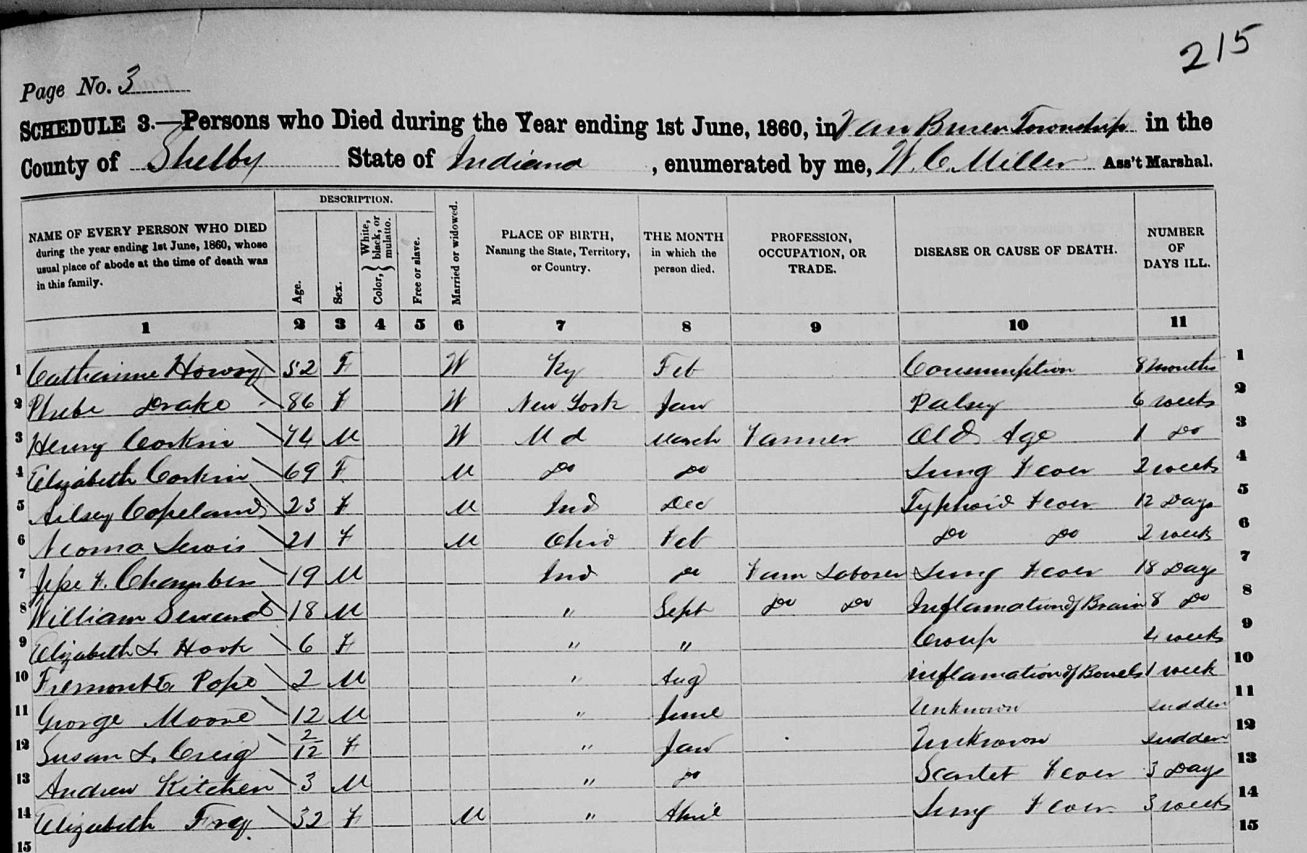 215
Page No. 3
SCHEDULE 3.—Persons who Died during the Year ending 1st June, 1860, in Van Buren Township in the
County of Shelby State of Indiana, enumerated by me, W. C. Miller Ass't Marshal.
NAME OF EVERY PERSON WHO DIED during the year ending 1st June, 1860, whose usual place of abode at the time of death was in this family. DESCRIPTION. Age. Sex. Color, White, black, or mulatto. Free or slave. Married or widowed. PLACE OF BIRTH, Naming the State, Territory, or Country. THE MONTH in which the person died. PROFESSION, OCCUPATION, OR TRADE. DISEASE OR CAUSE OF DEATH. NUMBER OF DAYS ILL.
1 2 3 4 5 6 7 8 9 10 11
1 Catharine 52 F W Ky Feb Consumption 8 months 1
2 Phebe Drake 86 F W New York Jan Palsey 6 weeks 2
3 Henry Corkin 74 M W Md March Farmer Old Age 1 Do 3
4 Elizabeth Corkin 69 F M Do Do Lung Fever 2 weeks 4
5 Copeland 23 F M Ind Dec Typhoid Fever 12 Days 5
6 Neoma Lewis 21 F M Ohio Feb Do Do 2 week 6
7 Jesse F. Chamber 19 M Ind Do Farm Laborer Lung Fever 18 Days 7
8 William 18 M " Sept Do Do Inflamation of Brain 8 Do 8
9 Elizabeth Hook 6 F " " Croup 4 weeks 9
10 Pope 2 M " Aug inflamation of Bowels 1 week 10
11 George Moore 12 M " June Unknown sudden 11
12 Susan L. Creig 2/12 F " Jan Unknown sudden 12
13 Andrew Kitchen 3 M " Do Scarlet Fever 3 Days 13
14 Elizabeth 32 F M " April Lung Fever 3 weeks 14
15 15